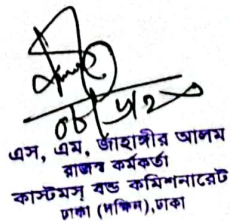 এস, এম, জাহাঙ্গীর আলম
রাজস্ব কর্মকর্তা
কাস্টমস্ বন্ড কমিশনারেট
ঢাকা (দক্ষিন), ঢাকা